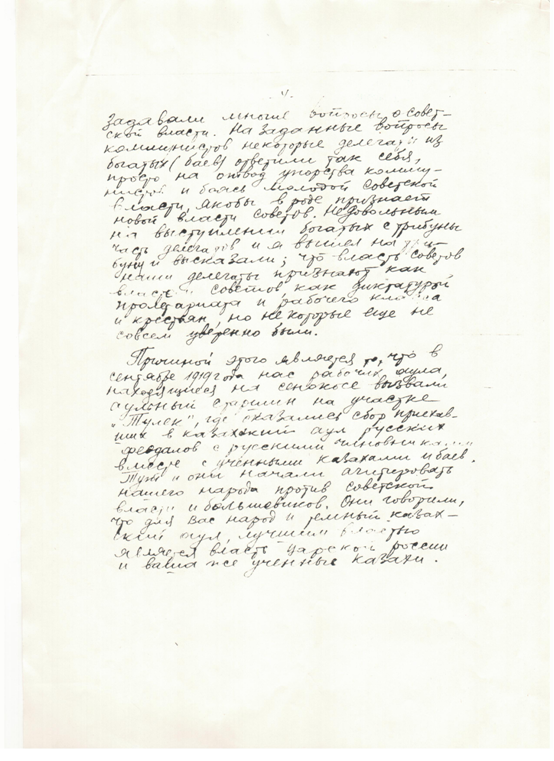 задавали многие вопросы о совет-
ской власти. На заданные вопросы
коммунистов некоторые делегаты из
богатых (баев) ответили так себя,
просто на отвод упорства комму-
нистов и боясь молодой советской
власти, якобы вроде признает
новой власти советов. Недовольным
на выступлении богатых с трибуны
часть делегатов и я вышел на три-
буну и высказали; что власть советов
наши делегаты признают как
власть советов как диктатурой
пролетариата и рабочего класса
и крестьян, но некоторые еще не
совсем уверенно были.
Причиной этого является то, что в
сентябре 1919 года нас рабочих аула,
находящиеся на сенокосе вызвали
аульный старшин на участке
"Тулек", где оказались сбор приехав-
ших в казахский аул русских
феодалов с русскими чиновниками
вместе с учёнными казахами и баев.
Тут и они начали агитировать
нашего народа против советской
власти и большевиков. Они говорили,
что для Вас народ и темный казах-
ский аул, лучшим властью
является власть царской россии
и ваша же ученные казахи.